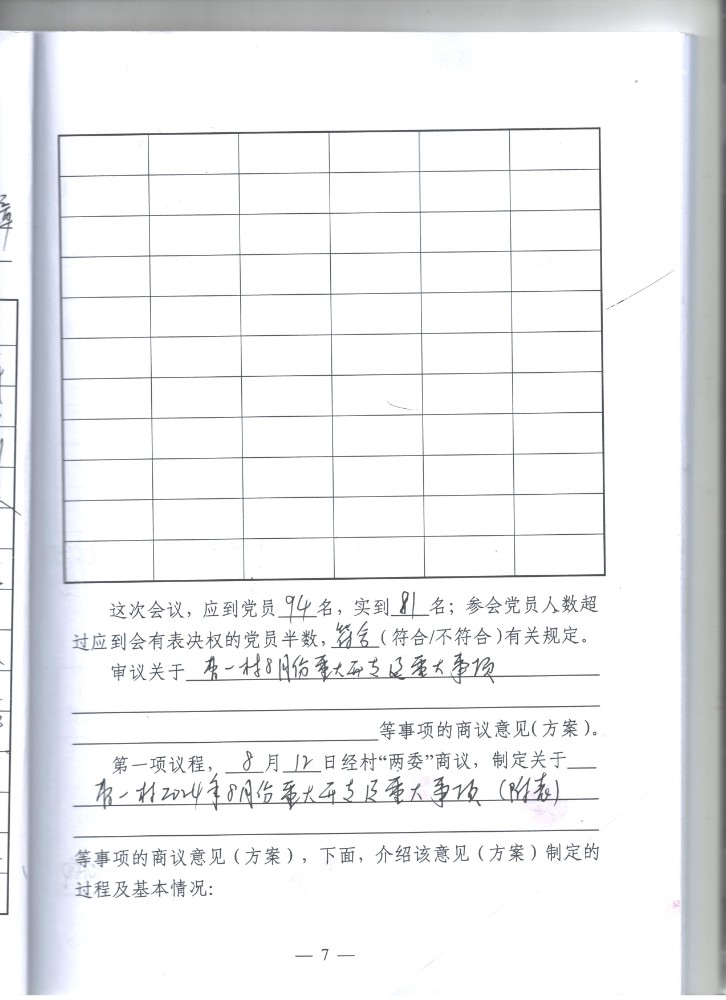 这次会议，应到党员 94 名，实到 81 名；参会党员人数超
过应到会有表决权的党员半数，符合（符合/不符合）有关规定。
审议关于 杏一村8月份重大开支及重大事项
等事项的商议意见（方案）。
第一项议程，8 月 12 日经村“两委”商议，制定关于
杏一村2024年8月份重大开支及重大事项（附表）
等事项的商议意见（方案），下面，介绍该意见（方案）制定的
过程及基本情况：
— 7 —